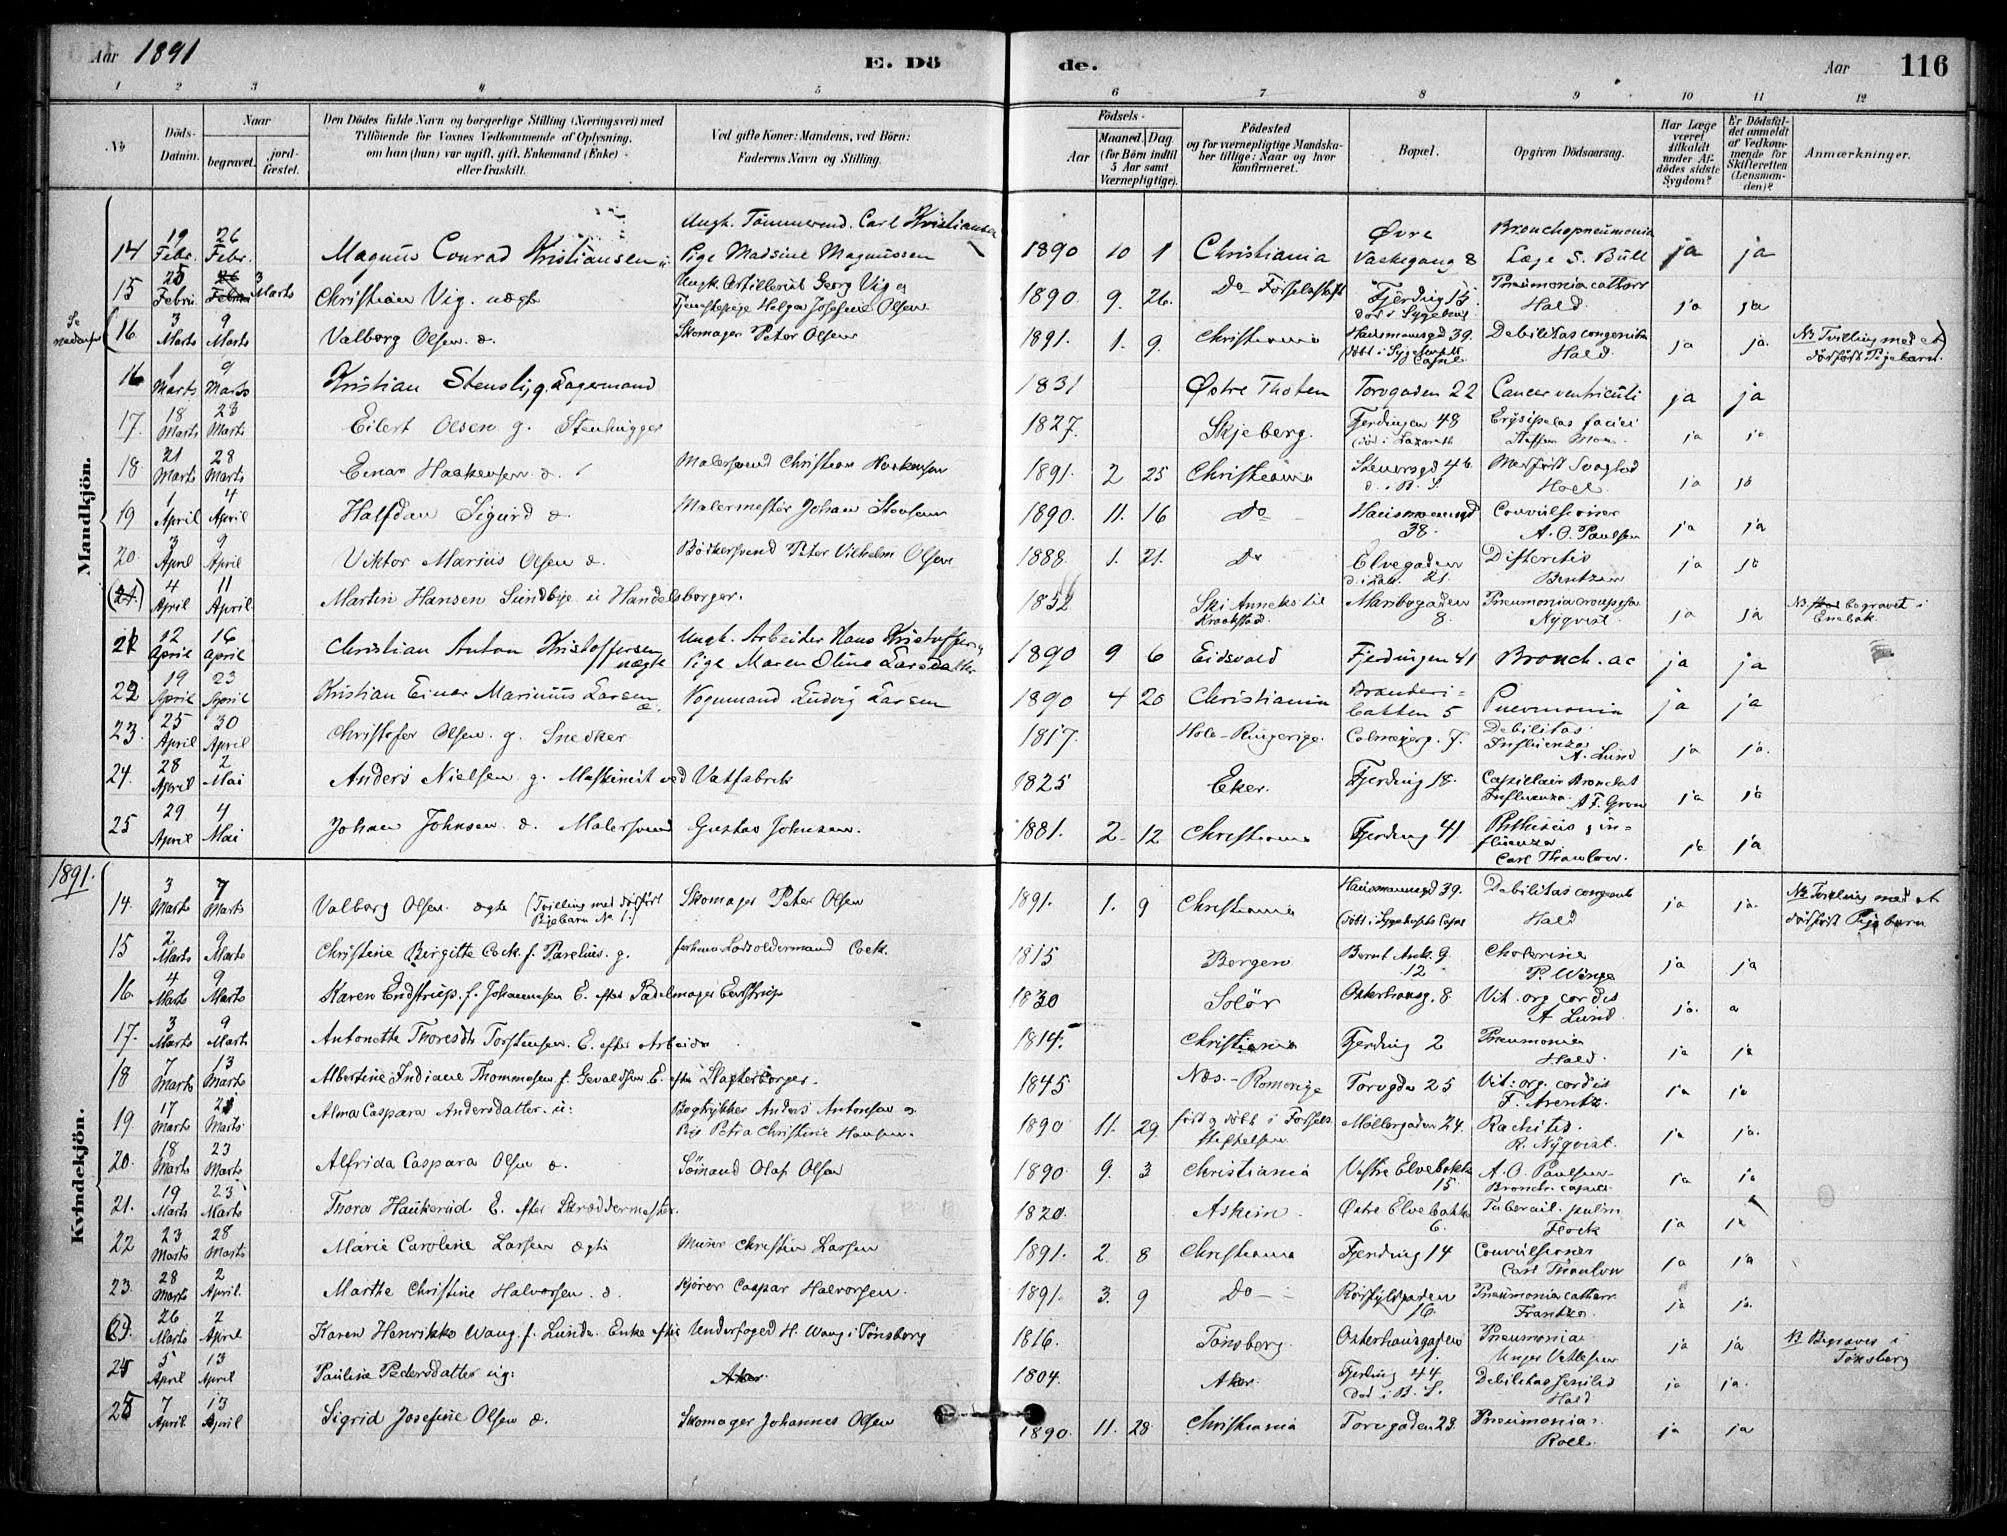 Aar 1891 E. Döde. Aar 116
1 2 3 4 5 6 7 8 9 10 11 12
No
Döds-Datum.
Naar
begravet.
jord-fæstet.
Den Dödes fulde Navn og borgerlige Stilling (Næringsvei) med
Tilföiende for Voxnes Vedkommende af Oplysning,
om han (hun) var ugift, gift, Enkemand (Enke)
eller fraskilt.
Ved gifte Koner: Mandens, ved Börn:
Faderens Navn og Stilling.
Födsels-
Aar
Maaned. Dag.
(for Börn indtil
5 Aar samt
Værnepligtige).
Födested
og for værnepligtige Mandska-
ber tillige: Naar og hvor
konfirmeret.
Bopæl.
Opgiven Dödsaarsag.
Har Læge
været
tilkaldt
under Af-
dödes sidste
Sygdom?
Er Dödsfal-
det anmeldt
af Vedkom-
mende for
Skifteretten
(Lensman-
den)?
Anmærkninger.
Mandkjön.
14 19 Febr. 26 Febr. Magnus Conrad Kristiansen u. Ungk. Tømmermd. Carl Kristiansen Pige Madsine Magnussen 1890 10 1 Christiania Øvre Vaskegang 8 Bronchopneumonia Læge S. Bull ja ja
15 25 Febru 3 Marts Christian Vig. uægte Ungk. Artillerist Georg Vig og Tjenestepige Helga Josefine Olsen 1890. 9. 26. Do Fødselsstift Fjerding 15 Død i Sygehus Pneumonia catharr Hald. ja ja
16 3 Marts 9 Marts Valborg Olsen æ. Skomager Peter Olsen 1891. 1. 9. Christiania Hausmannsgd 39. Debilitas congenita Hald. ja ja. NB Tvilling med et dødfødt Pigebarn.
16 1 Marts 9 Marts Kristian Stenslig. Lagermand 1831 Østre Thoten Torvgaden 22 Cancer ventriculi ja ja
17. 18 Marts 23 Marts Eilert Olsen g. Stenhugger 1827. Skjeberg. Fjerdingen 48 Erysipelas faciei ja ja
18 21 Marts 28 Marts Einar Haakensen æ. Malersvend Christian Haakensen 1891. 2 25 Christiania Steensgd 46. d. i B. S. Medfødt Svaghed Hall. ja ja
19 1 April 4 April Halfdan Sigurd æ. Malermester Johan 1890. 11. 16 Do Hausmannsgd 38. Convulsioner A. O. Paulsen ja ja
20. 3 April 9 April Viktor Marius Olsen æ. Bødkersvend Peter Vilhelm Olsen 1888 1. 21. Do Elvegaden 21. Difteritis Bentzen ja ja
(21.) 4 April 11 April. Martin Hansen Sundbye u Handelsborger. 1832 Ski Anneks til Kraakstad. Maribogaden 8. Pneumonia crouposa Nyqvist. ja ja NB. begravet i Enebak.
21 12 April 16 April Christian Anton Kristoffersen uægte Ungk. Arbeider Hans Kristoffersen Pige Maren Oline Larsdatter 1890 9 6 Eidsvold Fjerdingen 41 Bronch. ac ja ja
22 19 April 23 April Kristian Einar Marinius Larsen æ. Vognmand Ludvig Larsen 1890 4 20 Christiania Branderi-bakken 5 Pneumonia ja ja
23. 25 April 30 April Christofer Olsen. g. Snedker 1817. Hole-Ringerige. Colmejerg. 7. Debilitas. Influenza A. Lund ja ja.
24. 28 April 2 Mai Anders Nielsen g. Maskinist ved Vatfabrik 1825 Eker. Fjerding 18. Capillair Bronchit Influenza A. F. Grøn ja ja
25 29 April 4 Mai Johan Johnsen æ. Malersvend Gustav Johnsen. 1881. 2. 12 Christiania Fjerding 41 Phthisis & in-fluenza Carl Thaulow. ja ja
1891.
Kvindekjön.
14. 3 Marts 7 Marts Valborg Olsen ægte (Tvilling med dødfødt Pigebarn No 1.) Skomager Peter Olsen 1891. 1. 9 Christiania Hausmannsgd 39. Debilitas congenita Hald ja ja. NB Tvilling med et dødfødt Pigebarn
15 2 Marts 9 Marts Christine Birgitte Cock f. Parelius. g. forhenv. Lodsoldermand Cock. 1815 Bergen Bernt Ank. g. 12 Cholerine P. Winge ja ja
16. 4 Marts 9 Marts Karen Endstrup. f. Johannesen E. efter Sadelmager Endstrup 1830 Solør Osterhausg. 8 Vit. org. cordis A Lund. ja. a
17. 3 Marts 9 Marts Antonette Thoresdt Torstensen. E. efter Arbeider 1814. Christiania Fjerding 2 Pneumonia Hald. ja ja
18 7 Marts 13 Marts Albertine Indiane Thommesen f. Gevaldsen E. efter Slagterborger. 1845 Næs-Romerige Torvgdn 25 Vit: org. cordis F. Arentz. ja ja
19. 17 Marts 21 Marts Alma Caspara Andersdatter. u: Bogtrykker Anders Antonsen og Pige Petra Christine Hansen. 1890 11. 29. født og døbt i Fødsels Stiftelsen Møllergaden 24. Rachitis. R. Nyqvist. ja ja.
20. 18 Marts 23 Marts Alfrida Caspara Olsen æ. Sømand Olaf Olsen 1890 9. 3 Christiania Vestre Elvebakke 15. A. O. Paulsen. Bronch: capill. ja ja
21. 19 Marts 23 Marts Thora Haukerud E. efter Skræddermester. 1820. Askim. Østre Elvebakke 6. Tubercul. pulm Flock ja ja
22 23 Marts 28 Marts Marie Caroline Larsen ægte Murer Christian Larsen 1891. 2. 8 Christiania Fjerding 14 Convulsioner Carl Thaulow ja ja
23. 28 Marts 2 April. Marthe Christine Halvorsen. æ. Kjører Caspar Halvorsen. 1891. 3. 9 Do 16. Pneumonia catharr. Frantzo. ja ja.
(24) 26 Marts 2 April Karen Henrikke Wang f. Lunde. Enke efter Underfoged H. Wang i Tønsberg 1816. Tønsberg. Osterhausgaden 1. Pneumonia Unger Vetlesen ja ja NB Begraves i Tønsberg
25 5 April 13 April Pauline Pedersdatter ug: Aker. 1804. Aker Fjerding 44 Død i B. S. Debilitas senilis Hald ja ja.
25 7 April. 13 April Sigrid Josefine Olsen æ. Skomager Johannes Olsen 1890. 11. 28 Christiania Torvgaden 23. Pneumonia. Roll. ja ja